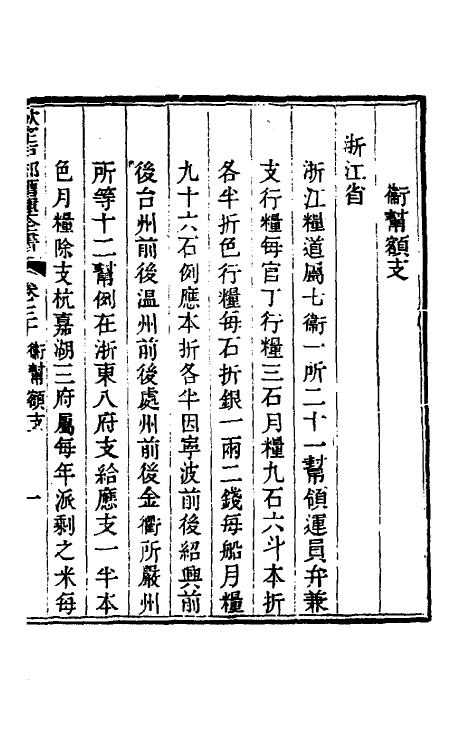 衞幫額支
浙江省
浙江糧道屬七衞一所二十一幫領運員弁兼
支行糧每官丁行糧三石月糧九石六斗本折
各半折色行糧每石折銀一兩二錢每船月糧
九十六石例應本折各半因寧波前後紹興前
後台州前後温州前後處州前後金衢所嚴州
所等十二幫例在浙東八府支給應支一半本
色月糧除支杭嘉湖三府屬每年派剩之米每
欽定戶部漕運全書 卷三十 衞幫額支 一